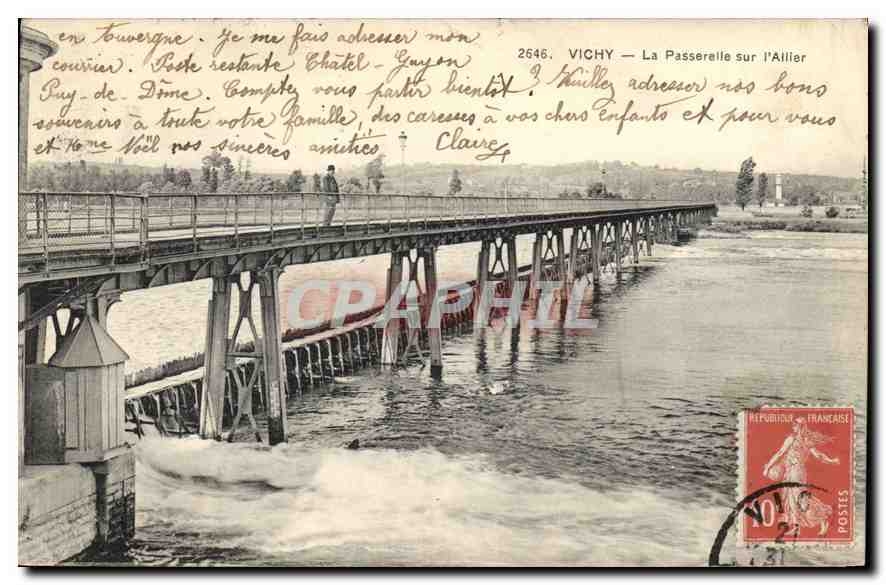 en Touvergne. Je me fais adresser mon
courrier. Poste restante Châtel-Guyon
Puy-de-Dôme. Comptez vous partir bientôt? Veuillez adresser nos bons
souvenirs à toute votre famille, des caresses à vos chers enfants et pour vous
et Mme Noël nos sincères amitiés Claire
2646. VICHY — La Passerelle sur l'Allier
CPAPHIL
REPUBLIQUE FRANCAISE
10c
POSTES
VIC